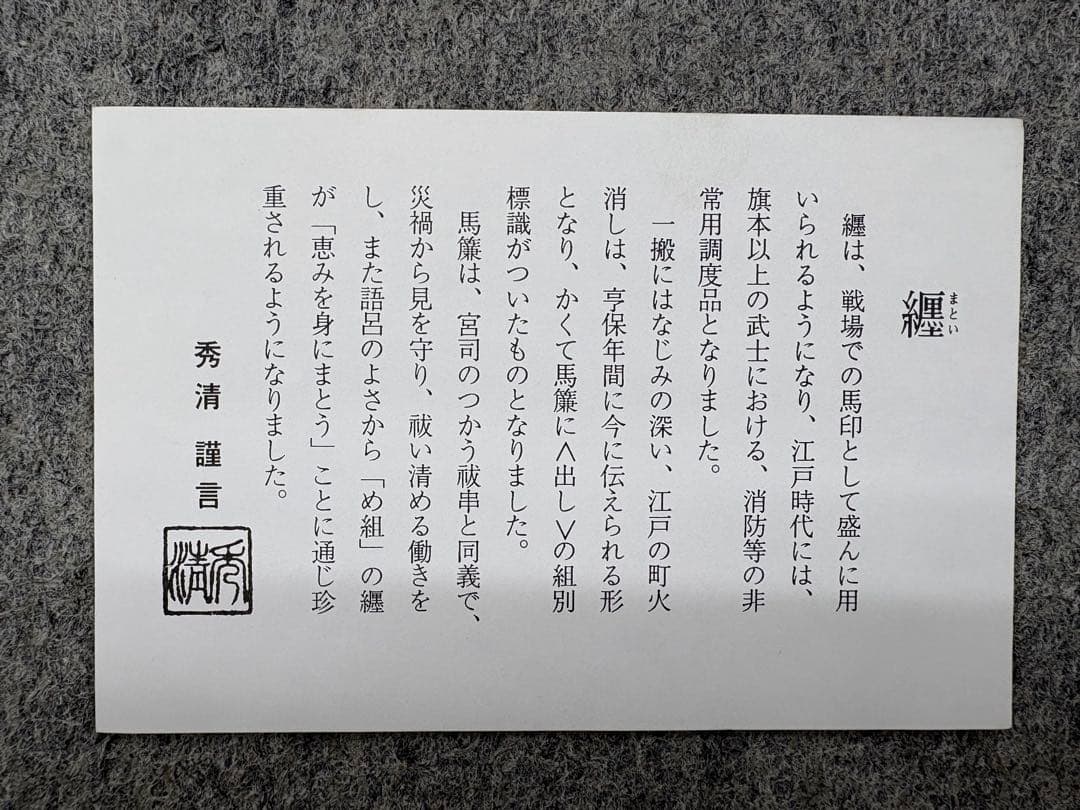 纒
まとい
纒は、戦場での馬印として盛んに用
いられるようになり、江戸時代には、
旗本以上の武士における、消防等の非
常用調度品となりました。
一搬にはなじみの深い、江戸の町火
消しは、亨保年間に今に伝えられる形
となり、かくて馬簾に〈出し〉の組別
標識がついたものとなりました。
馬簾は、宮司のつかう祓串と同義で、
災禍から見を守り、祓い清める働きを
し、また語呂のよさから「め組」の纒
が「恵みを身にまとう」ことに通じ珍
重されるようになりました。
秀清 謹言
秀清